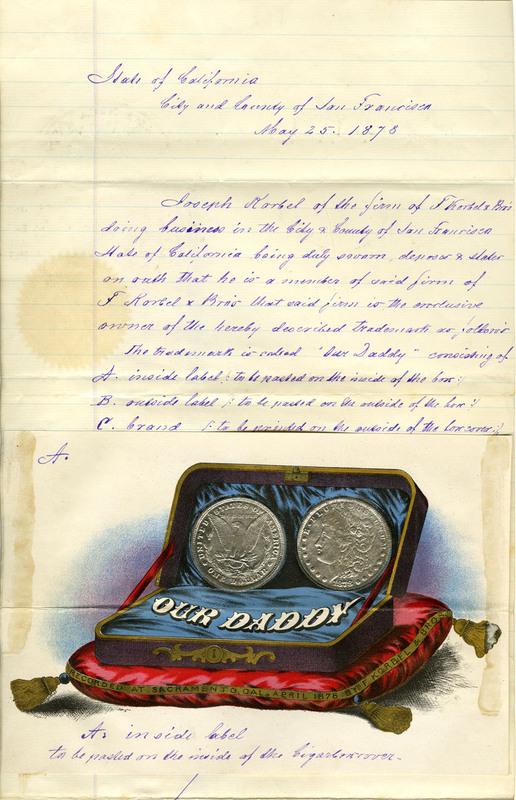 State of California
City and County of San Francisco
May 25. 1878
Joseph Korbel of the firm of F Korbel & Bros
doing business in the City & County of San Francisco
State of California being duly sworn, deposes & states
on oath that he is a member of said firm of
F Korbel & Bros that said firm is the exclusive
owner of the hereby described trademark as follows
The trademark is called "Our Daddy" consisting of
A. inside label (: to be pasted on the inside of the box :)
B. outside label (: to be pasted on the outside of the box :)
C. brand (: to be printed on the outside of the boxcover :)
A.
UNITED STATES OF AMERICA
ONE DOLLAR
E PLURIBUS
OUR DADDY
RECORDED AT SACRAMENTO, CAL. APRIL 1878 BY F. KORBEL & BROS
A. inside label
to be pasted on the inside of the Cigarboxcover.